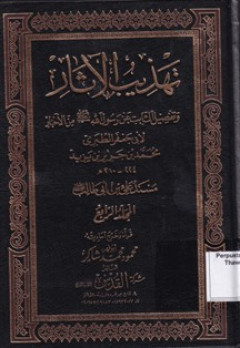 تهذيب الآثار
وتفصيل الثابت عن رسول الله ﷺ من الأخبار
لأبي جعفر الطبري
محمد بن جرير بن يزيد
٢٢٤ - ٣١٠ هـ
مسند علي بن أبي طالب
قرأه وخرج أحاديثه
محمود محمد شاكر
Perpust
Thaw